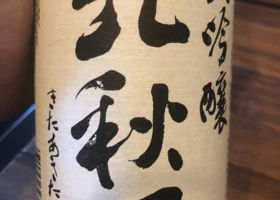 吟醸
北秋
きたあきた